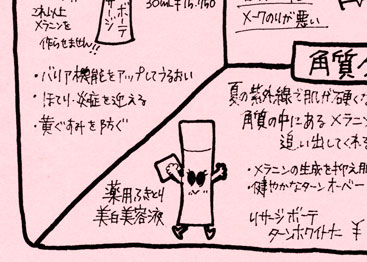 これ以上
メラニンを
作らせません!!
ボーテ
サージ
30mL ¥15.750
・バリア機能をアップしてうるおい
・ほてり・炎症を迎える
・黄ぐすみを防ぐ
薬用ふきとり
美白美容液
メークのりが悪い
角質ク
夏の紫外線で肌が硬くな
角質の中にあるメラニン
追い出してくれる
・メラニンの生成を抑え肌
・健やかなターンオーバー
リサージボーテ
ターンホワイトナ ¥